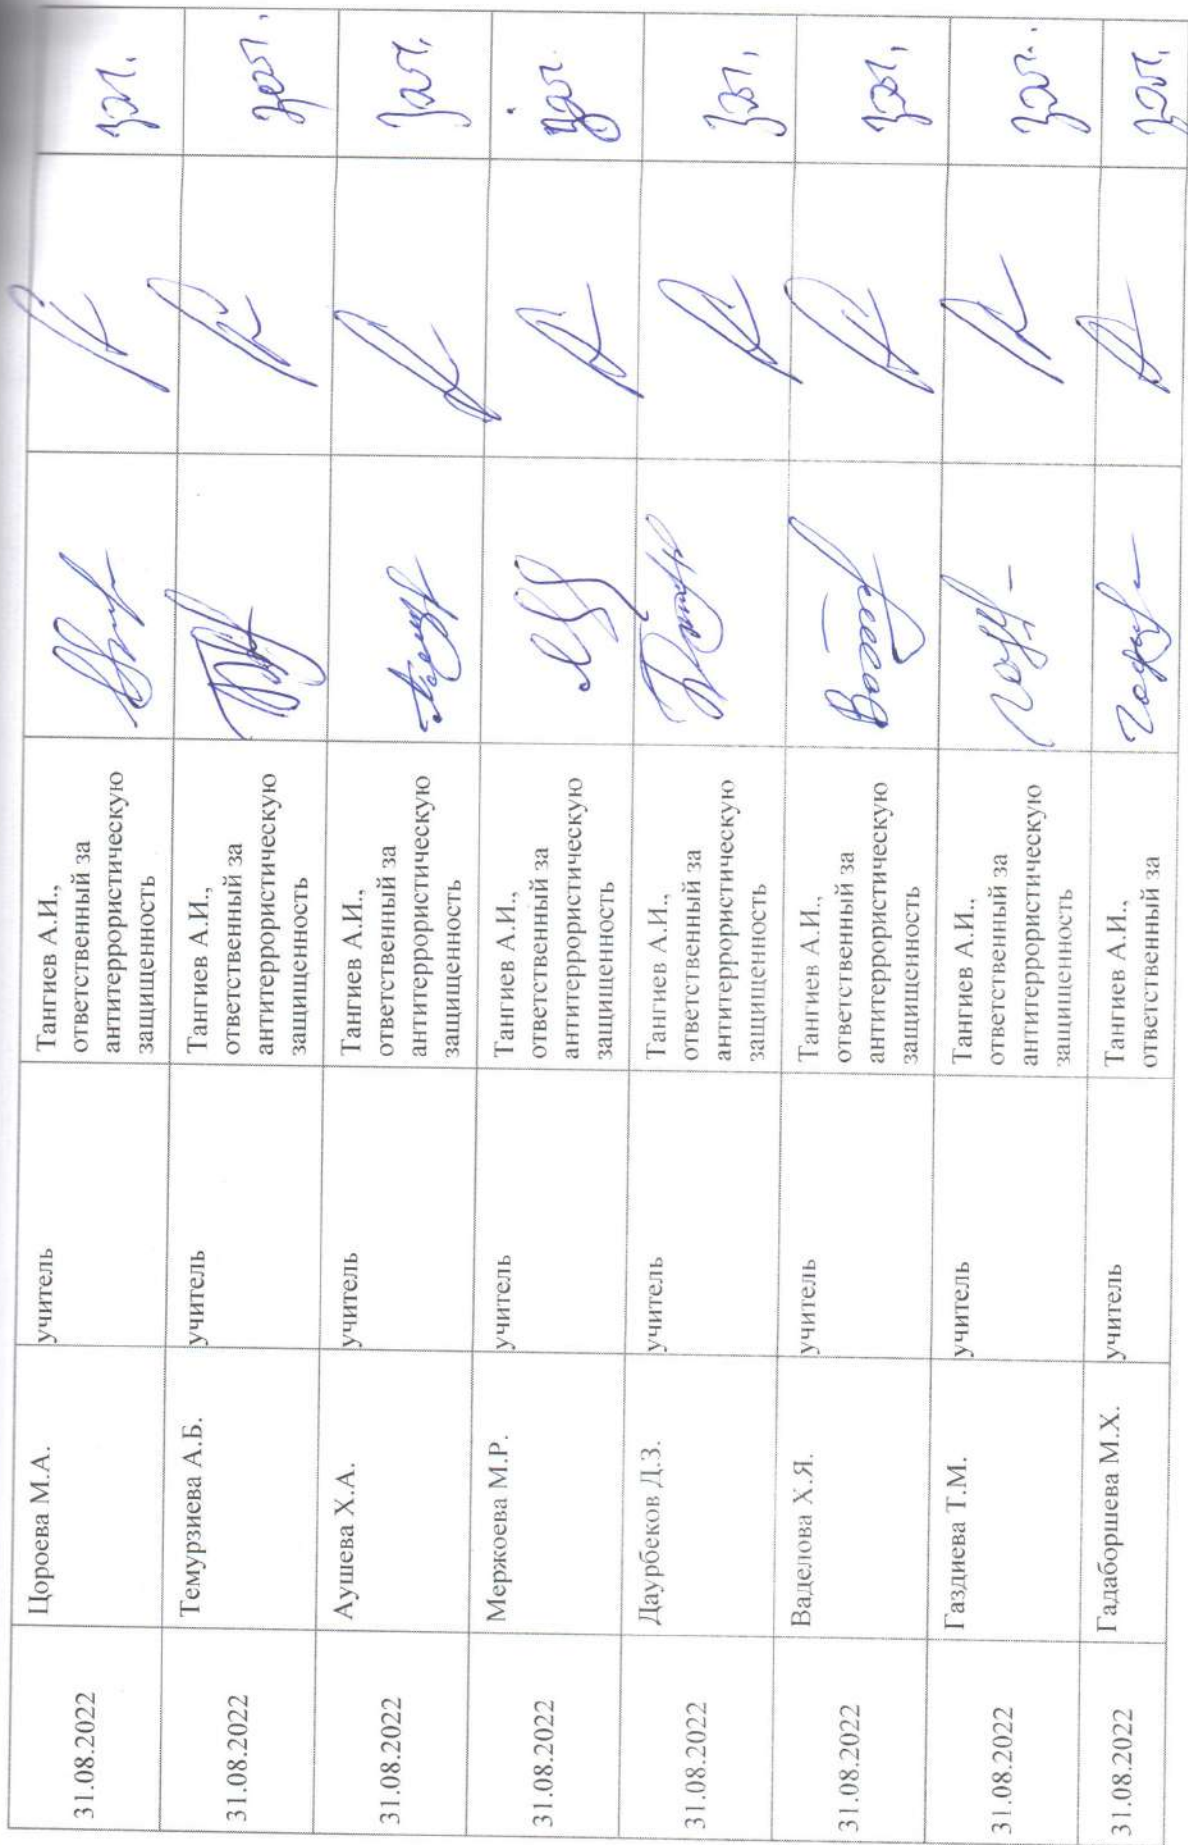 31.08.2022 Цороева М.А. учитель Тангиев А.И., зач.
ответственный за
антитеррористическую
защищенность
31.08.2022 Темурзиева А.Б. учитель Тангиев А.И., зач.
ответственный за
антитеррористическую
защищенность
31.08.2022 Аушева Х.А. учитель Тангиев А.И., зач.
ответственный за
антитеррористическую
защищенность
31.08.2022 Мержоева М.Р. учитель Тангиев А.И., зач.
ответственный за
антитеррористическую
защищенность
31.08.2022 Даурбеков Д.З. учитель Тангиев А.И., зач.
ответственный за
антитеррористическую
защищенность
31.08.2022 Ваделова Х.Я. учитель Тангиев А.И., зач.
ответственный за
антитеррористическую
защищенность
31.08.2022 Газдиева Т.М. учитель Тангиев А.И., зач.
ответственный за
антитеррористическую
защищенность
31.08.2022 Гадаборшева М.Х. учитель Тангиев А.И., зач.
ответственный за